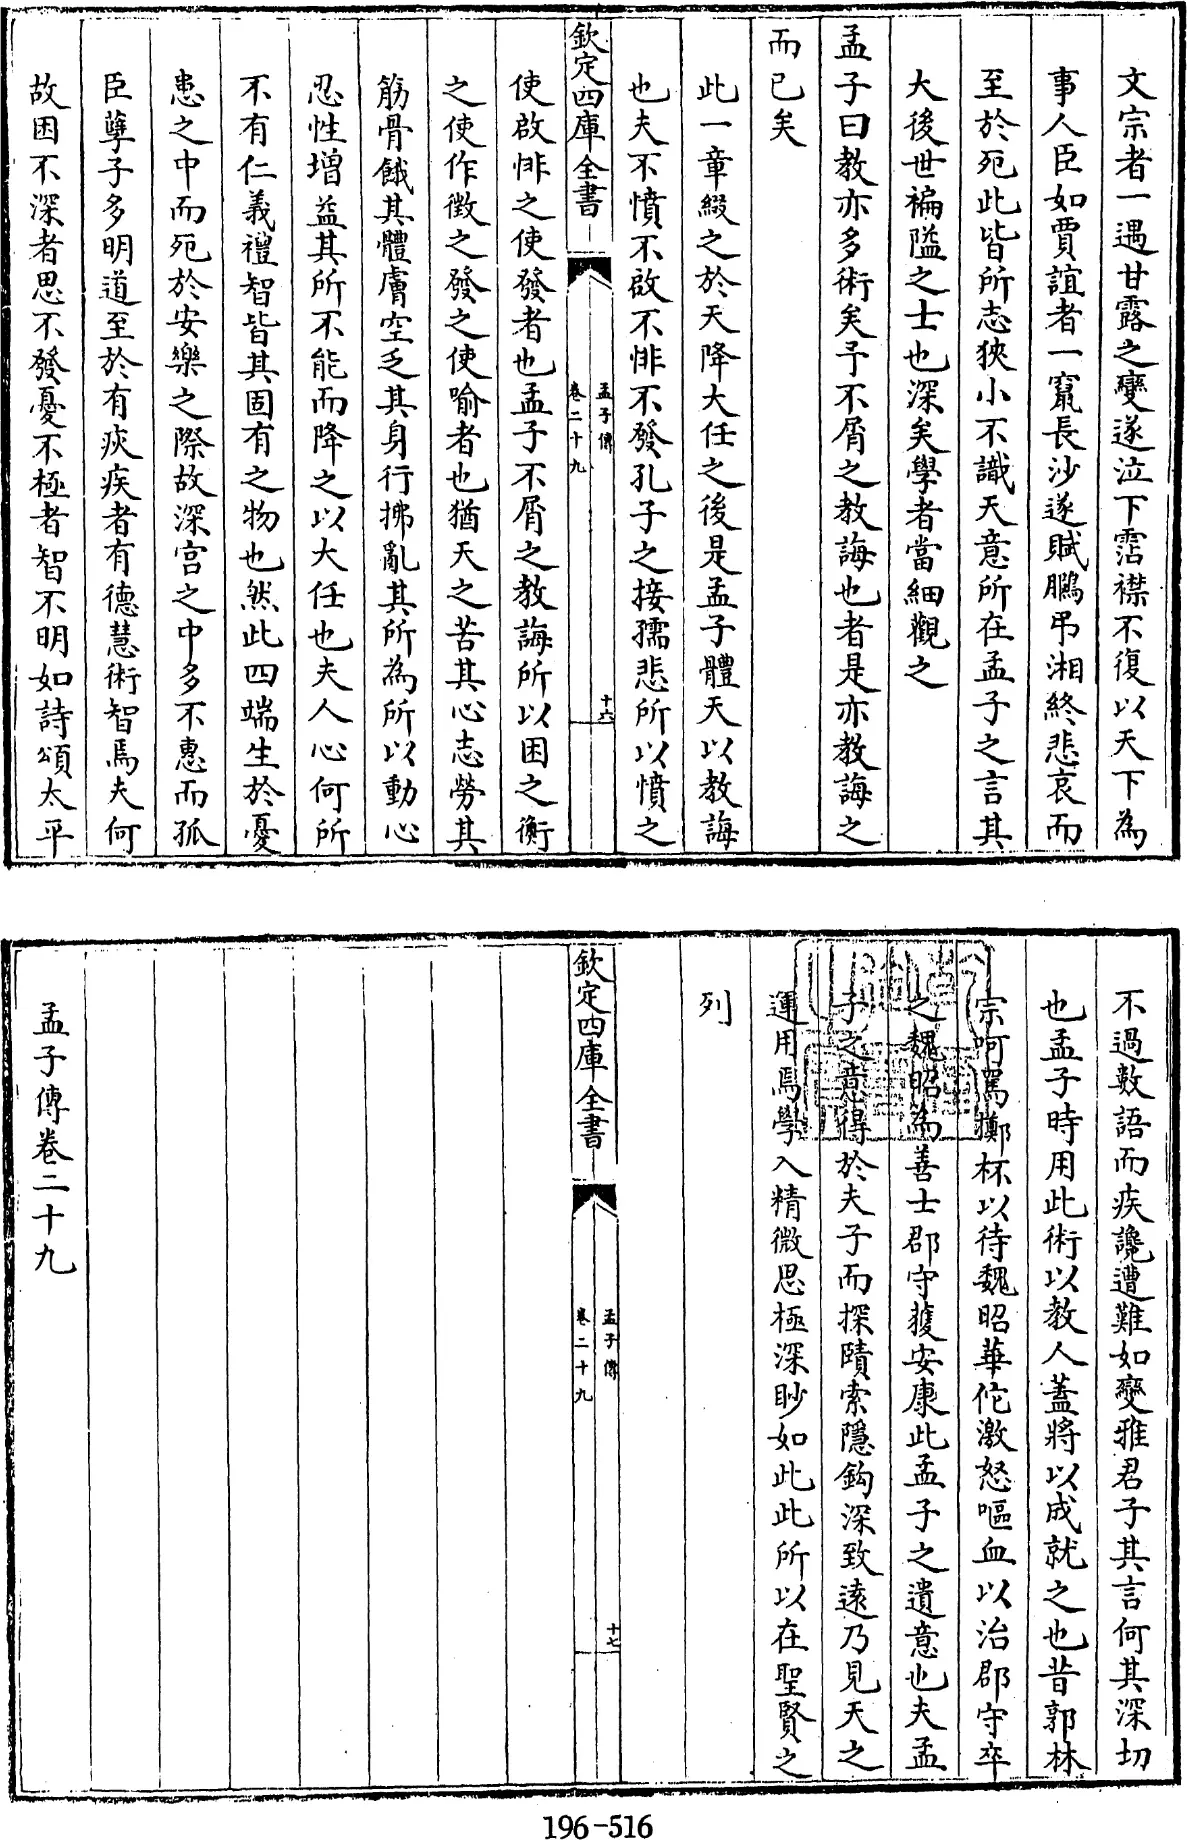 文宗者一遇甘露之變遂泣下霑襟不復以天下為
事人臣如賈誼者一竄長沙遂賦鵩弔湘終悲哀而
至於死此皆所志狹小不識天意所在孟子之言其
大後世褊隘之士也深矣學者當細觀之
孟子曰教亦多術矣予不屑之教誨也者是亦教誨之
而已矣
此一章綴之於天降大任之後是孟子體天以教誨
也夫不憤不啟不悱不發孔子之接孺悲所以憤之
欽定四庫全書
孟子傳
卷二十九
十六
使啟悱之使發者也孟子不屑之教誨所以困之衡
之使作徵之發之使喻者也猶天之苦其心志勞其
筋骨餓其體膚空乏其身行拂亂其所為所以動心
忍性增益其所不能而降之以大任也夫人心何所
不有仁義禮智皆其固有之物也然此四端生於憂
患之中而死於安樂之際故深宫之中多不惠而孤
臣孽子多明道至於有疢疾者有德慧術智焉夫何
故困不深者思不發憂不極者智不明如詩頌太平
不過數語而疾讒遭難如變雅君子其言何其深切
也孟子時用此術以教人蓋將以成就之也昔郭林
宗呵罵擲杯以待魏昭華佗激怒嘔血以治郡守卒
之魏昭為善士郡守獲安康此孟子之遺意也夫孟
子之意得於夫子而探賾索隱鈎深致遠乃見天之
運用焉學入精微思極深眇如此此所以在聖賢之
列
欽定四庫全書
孟子傳
卷二十九
十七
孟子傳卷二十九
196-516